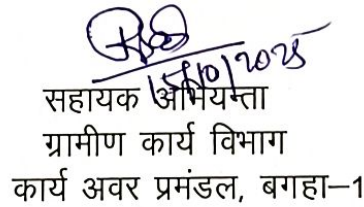 15/10/2025
सहायक अभियन्ता
ग्रामीण कार्य विभाग
कार्य अवर प्रमंडल, बगहा–1